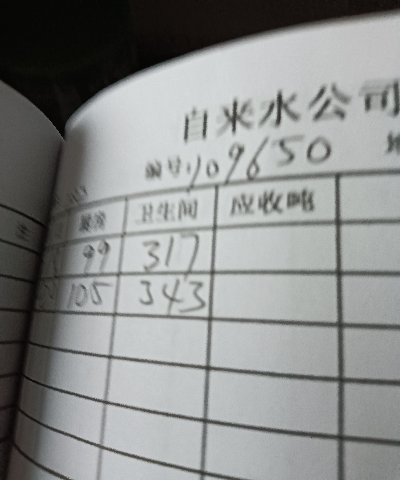 自来水公司
编号:109650
卫生间 应收略
99 317
105 343